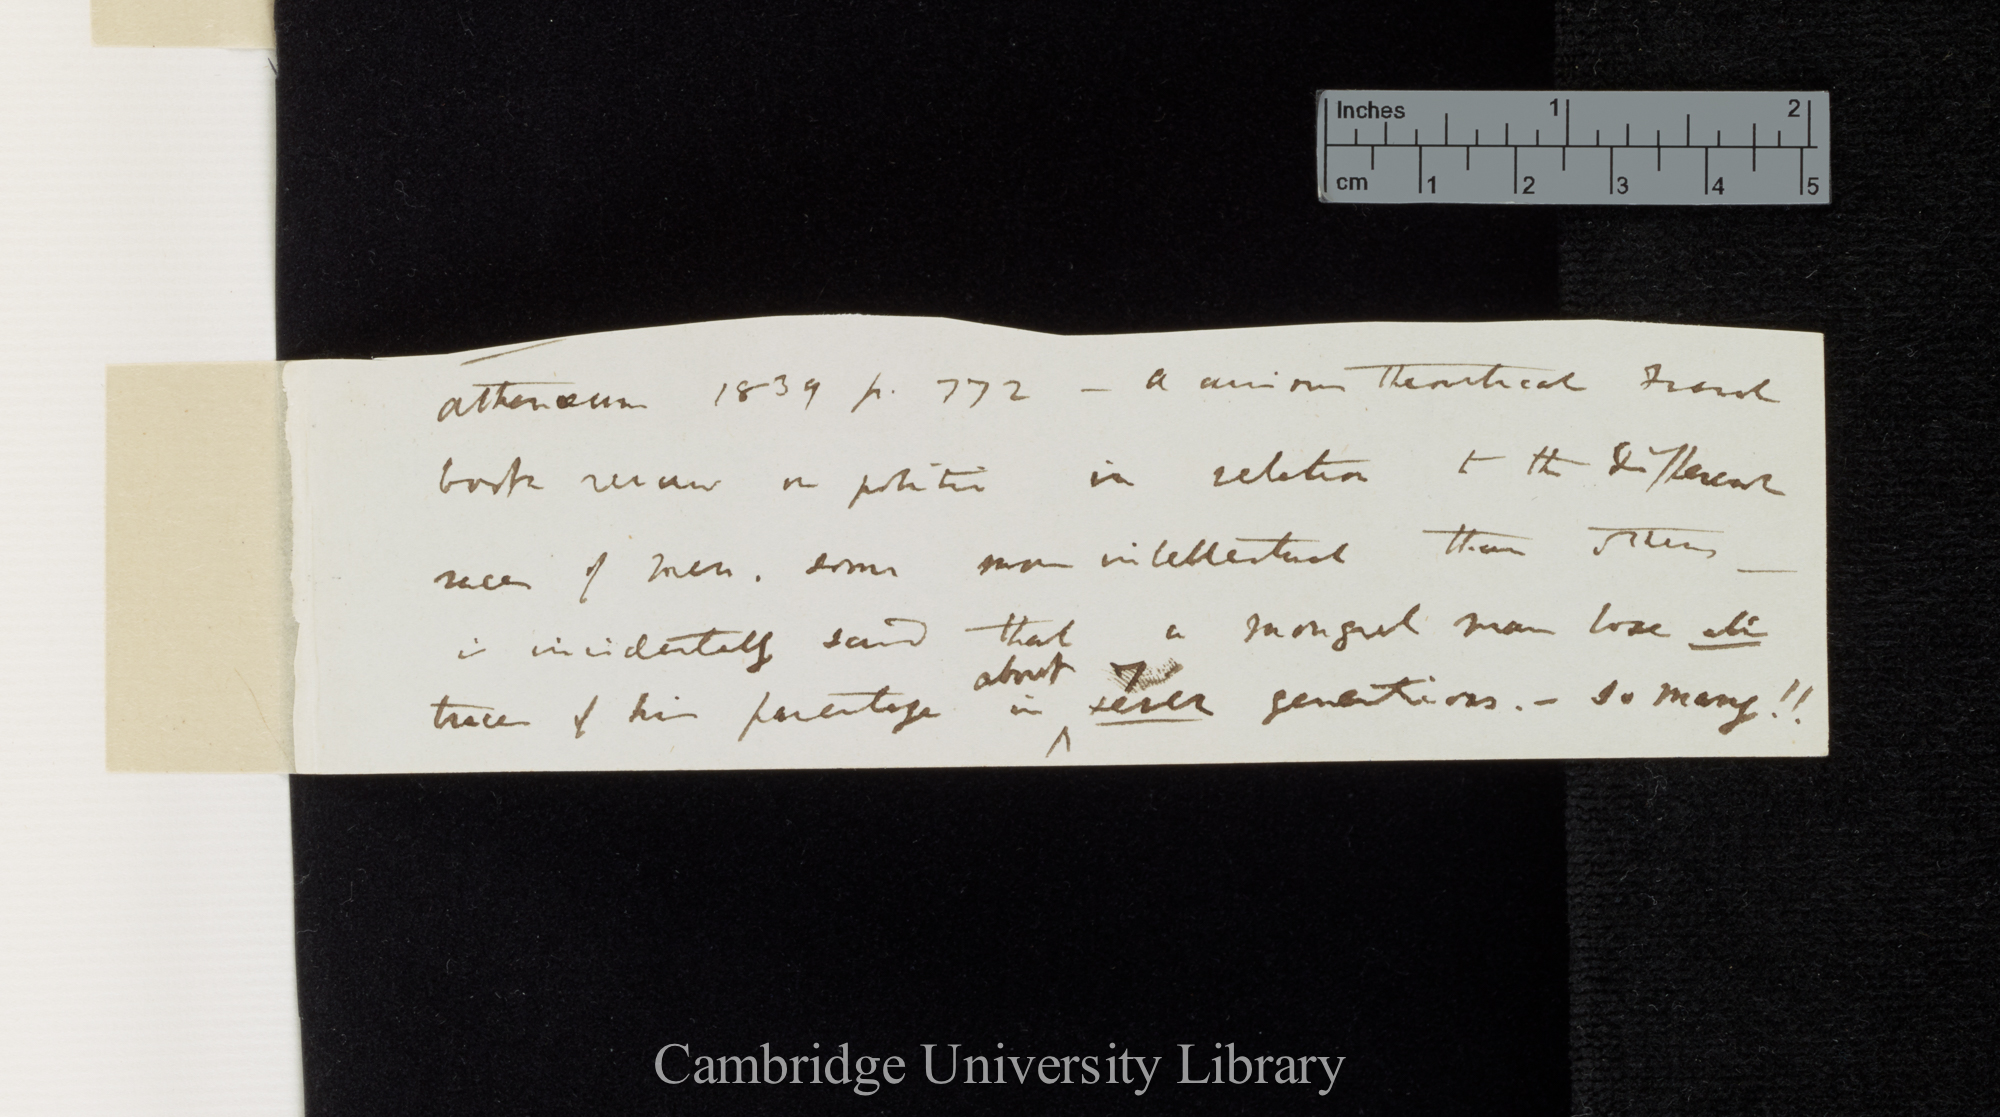 Inches 1 2
cm 1 2 3 4 5
Athenæum 1839 p. 772 — A curious theoretical French
book review on politics in relation to the different
races of men. some more intellectual than others —
is incidentally said that a mongrel man lose
about 7
traces of his parentage in seven generations. — so many!!
Cambridge University Library